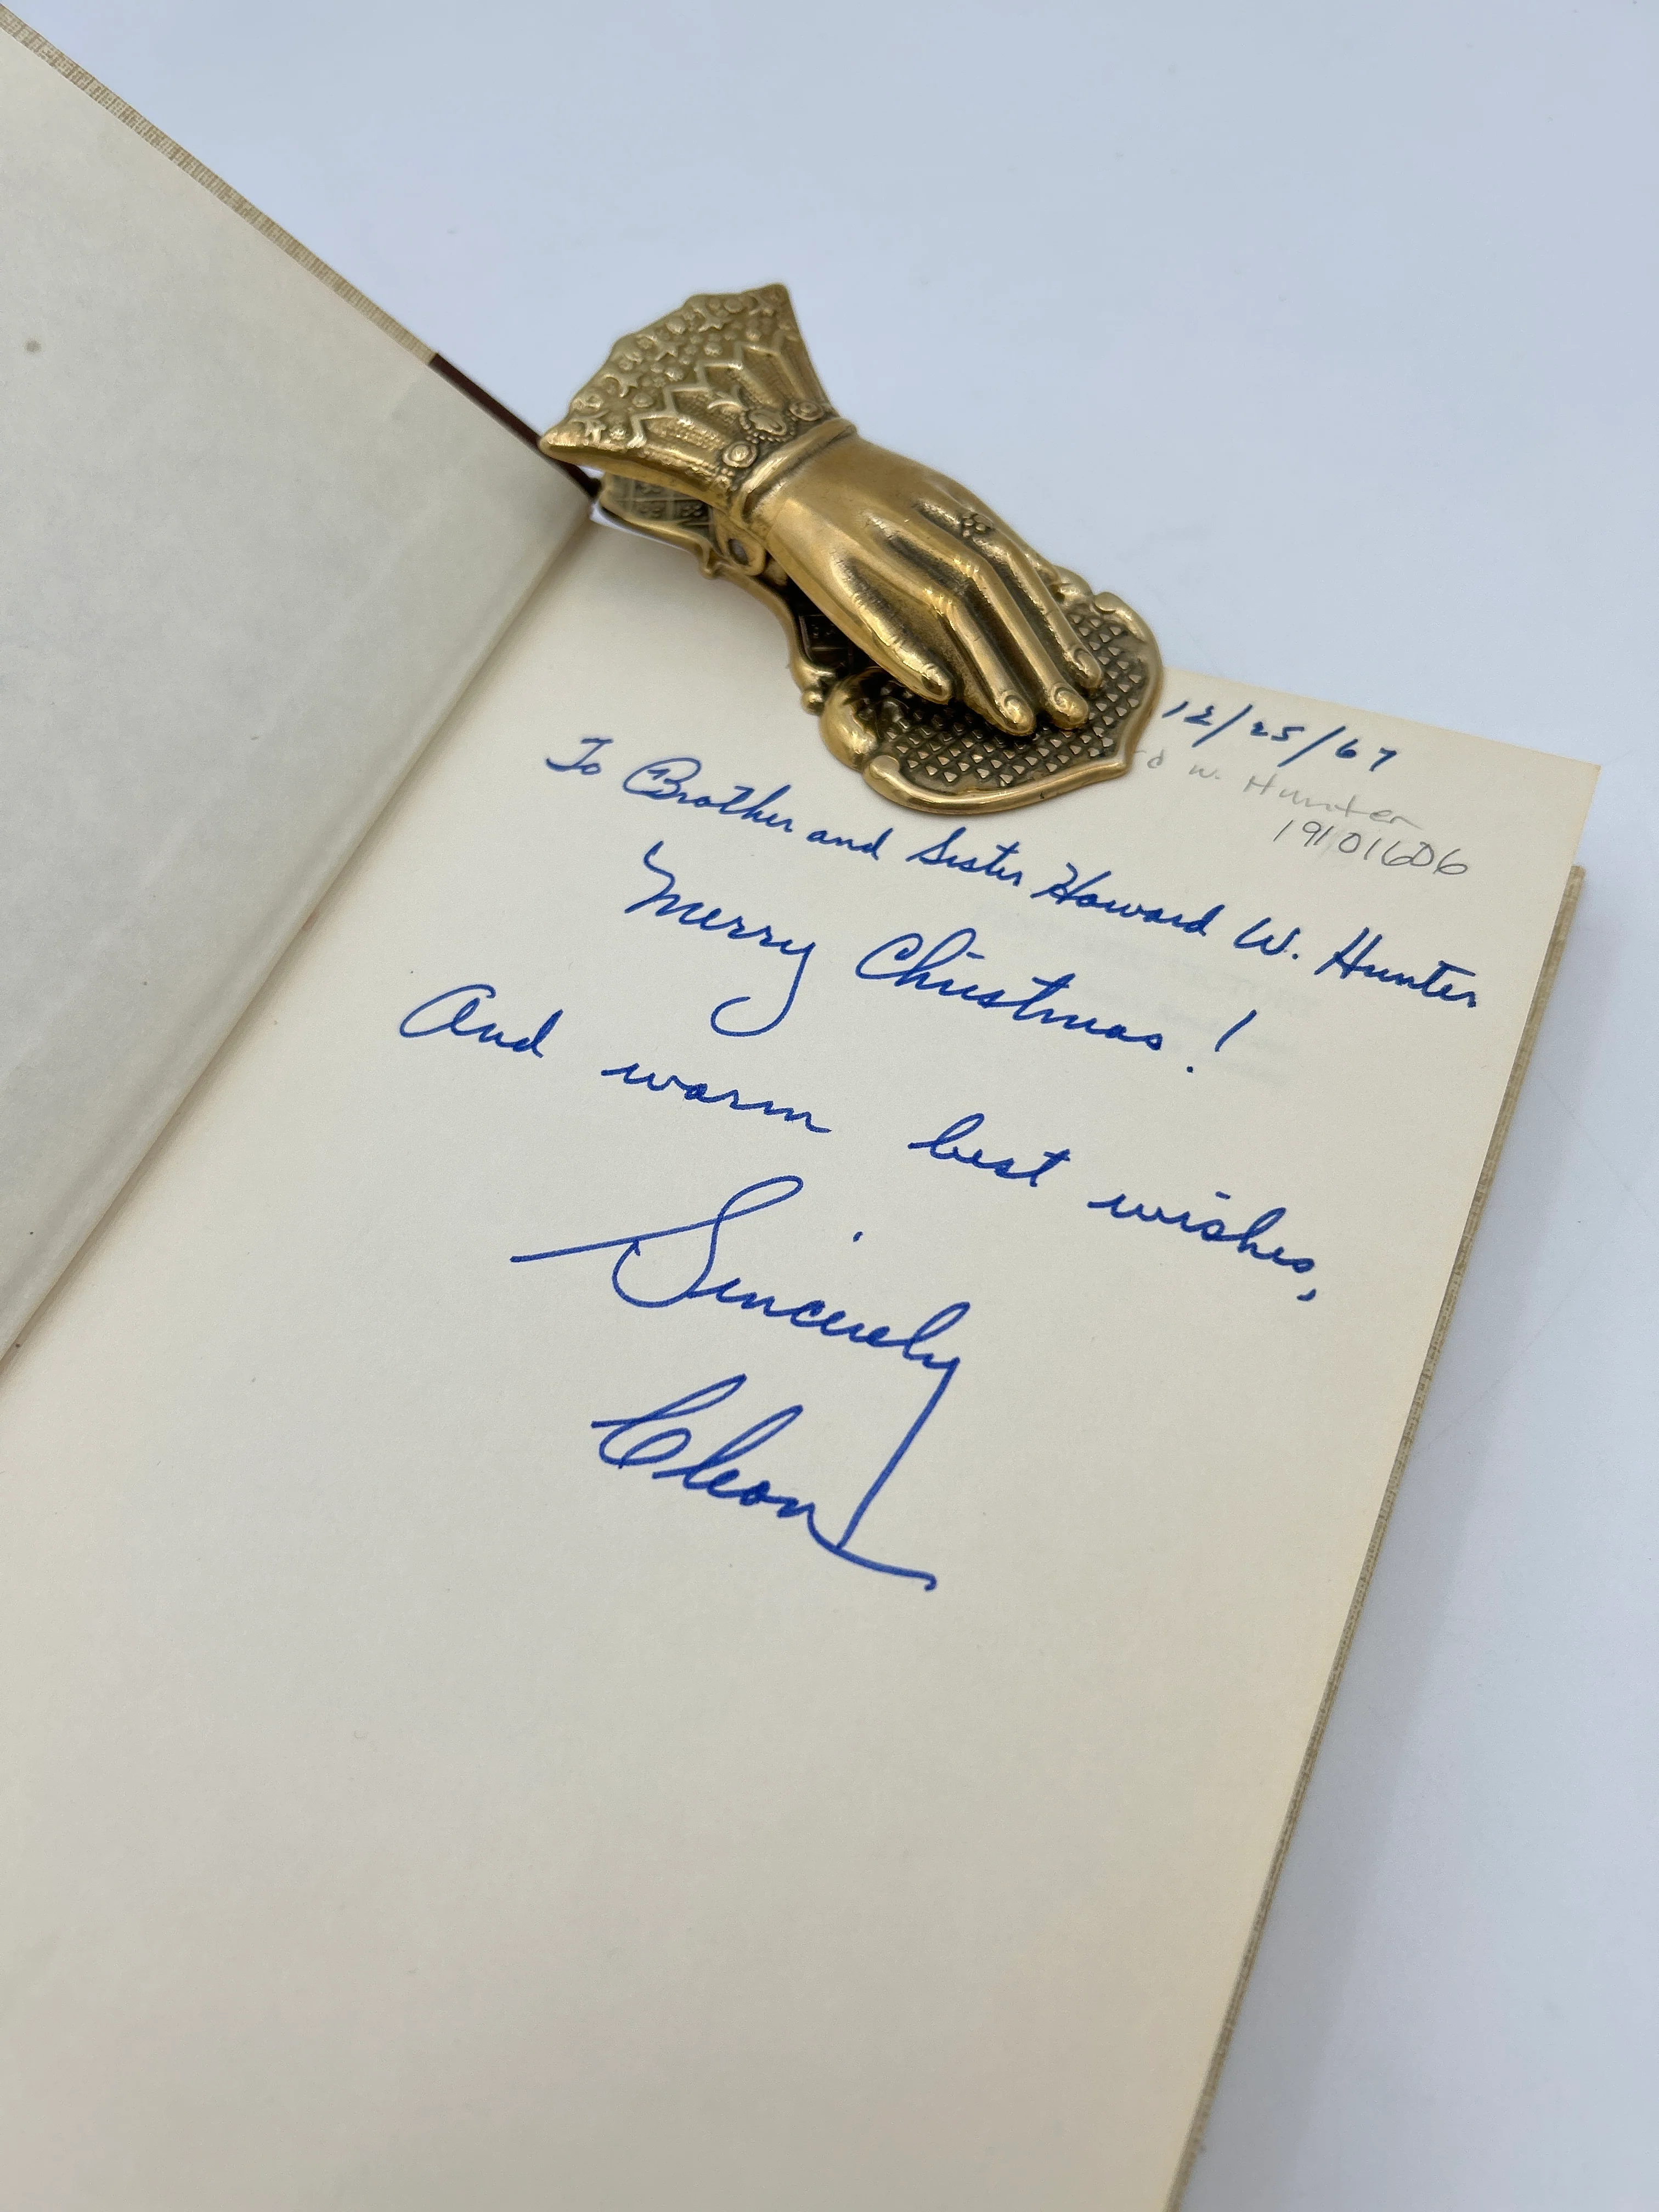 12/25/67
rd W. Hunter
19101606
To Brother and Sister Howard W. Hunter
Merry Christmas!
And warm best wishes,
Sincerely
Cleon